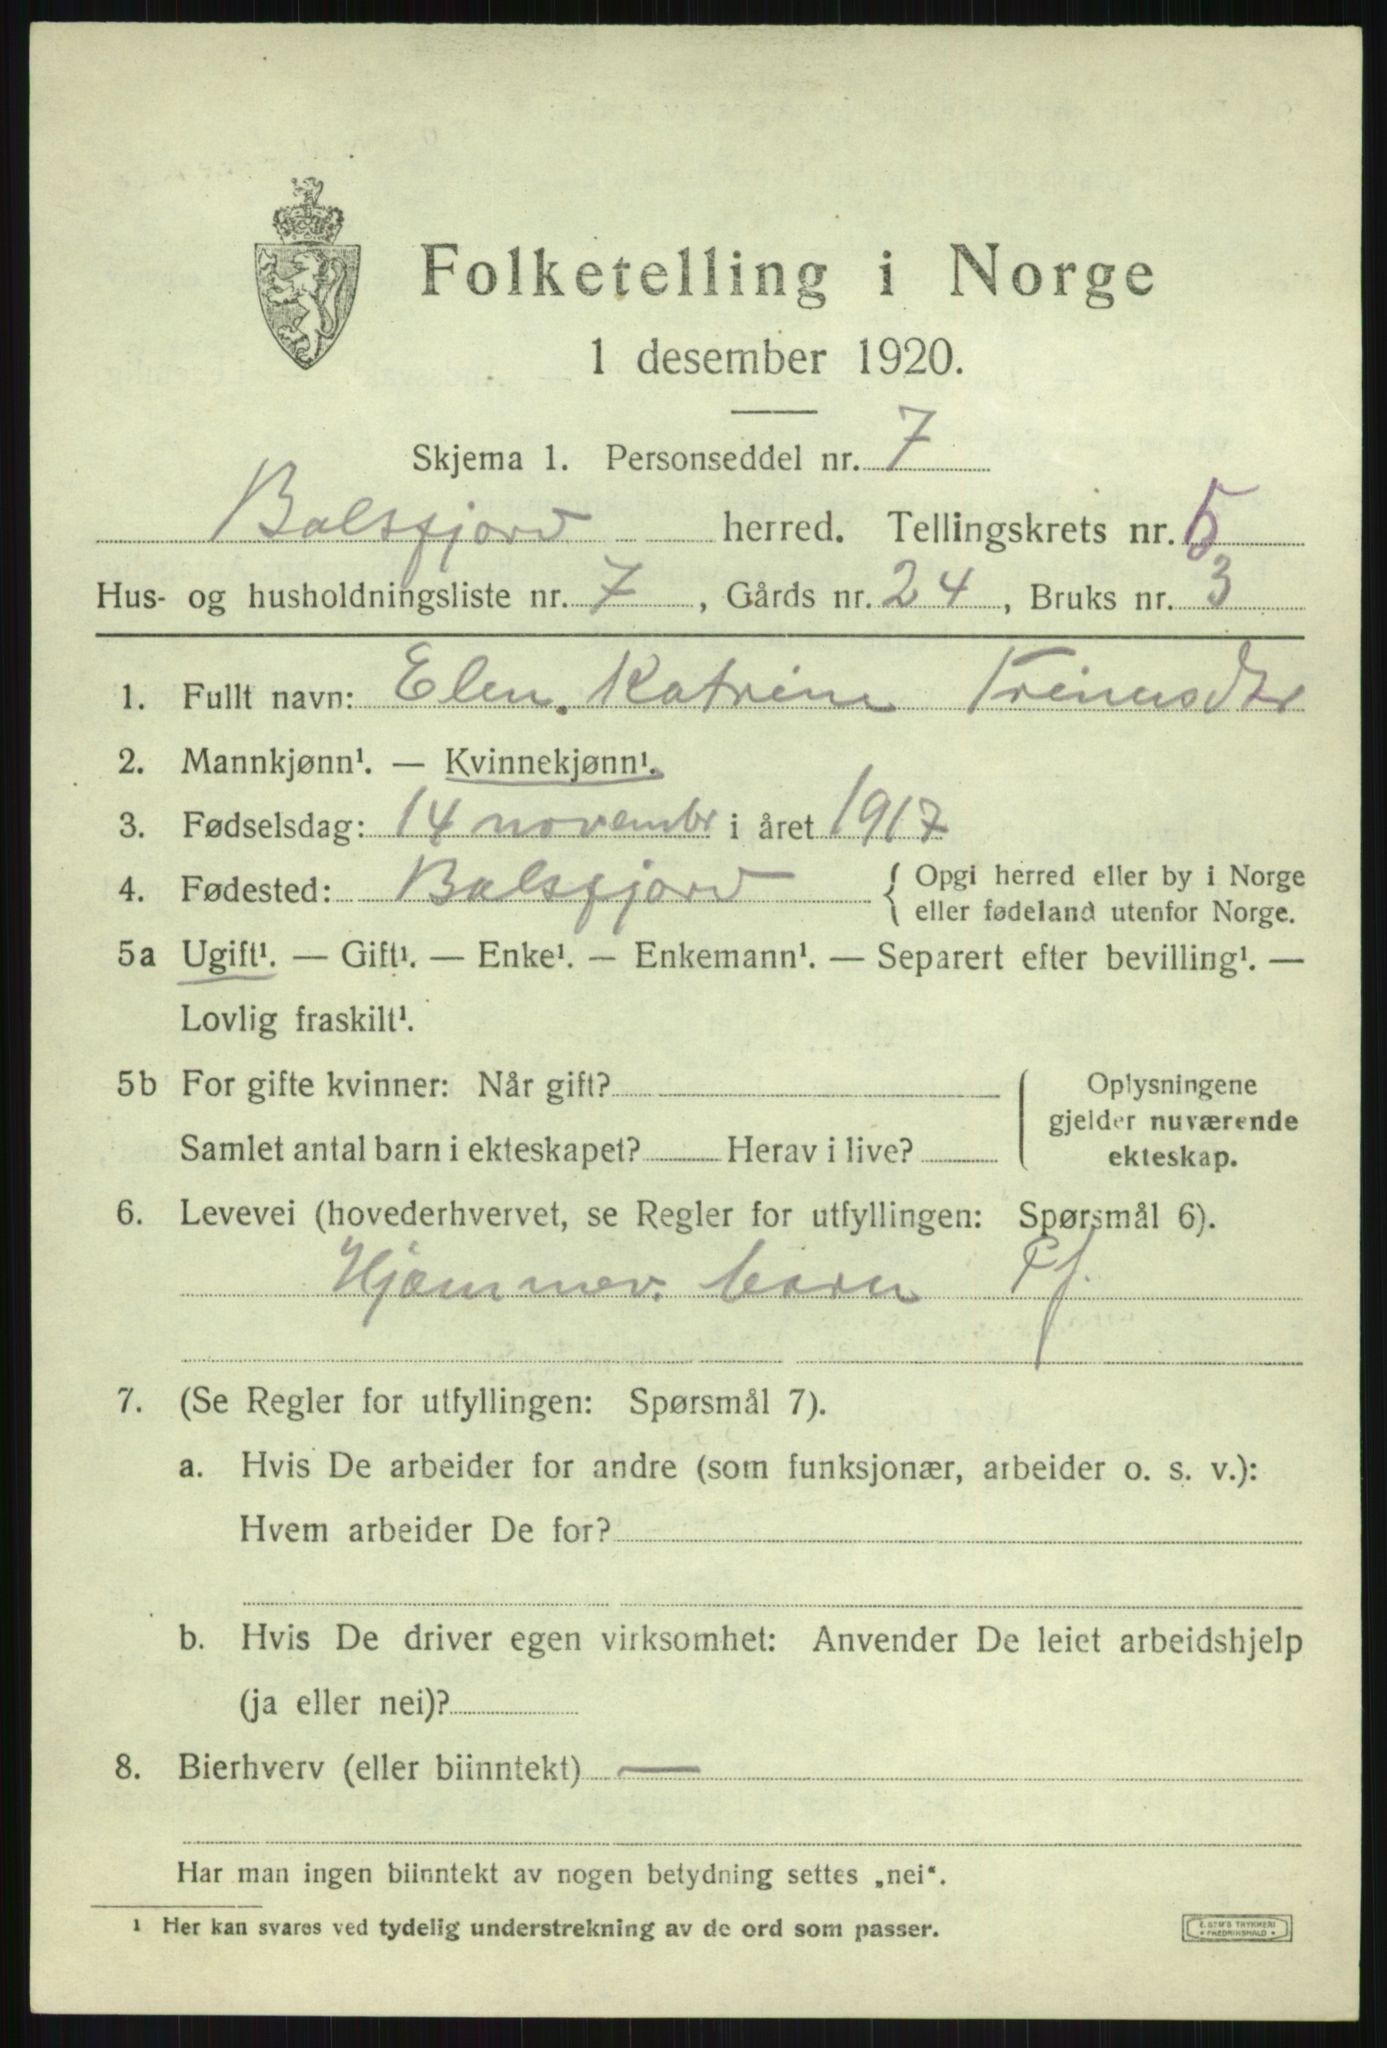 Folketelling i Norge
1 desember 1920.
Skjema 1. Personseddel nr. 7
Balsfjord herred. Tellingskrets nr. 5
Hus- og husholdningsliste nr. 7, Gårds nr. 24, Bruks nr. 3
1. Fullt navn: Elen Katrine Trinusdtr
2. Mannkjønn¹. — Kvinnekjønn¹.
3. Fødselsdag: 14 novembr i året 1917
4. Fødested: Balsfjord { Opgi herred eller by i Norge
eller fødeland utenfor Norge.
5a Ugift¹. — Gift¹. — Enke¹. — Enkemann¹. — Separert efter bevilling¹. —
Lovlig fraskilt¹.
5b For gifte kvinner: Når gift? Oplysningene
gjelder nuværende
Samlet antal barn i ekteskapet? Herav i live? ekteskap.
6. Levevei (hovederhvervet, se Regler for utfyllingen: Spørsmål 6).
Hjemmev. barn Ff.
7. (Se Regler for utfyllingen: Spørsmål 7).
a. Hvis De arbeider for andre (som funksjonær, arbeider o. s. v.):
Hvem arbeider De for?
b. Hvis De driver egen virksomhet: Anvender De leiet arbeidshjelp
(ja eller nei)?
8. Bierhverv (eller biinntekt) —
Har man ingen biinntekt av nogen betydning settes „nei“.
¹ Her kan svares ved tydelig understrekning av de ord som passer.
E. SEM'S TRYKKERI
* FREDRIKSHALD *